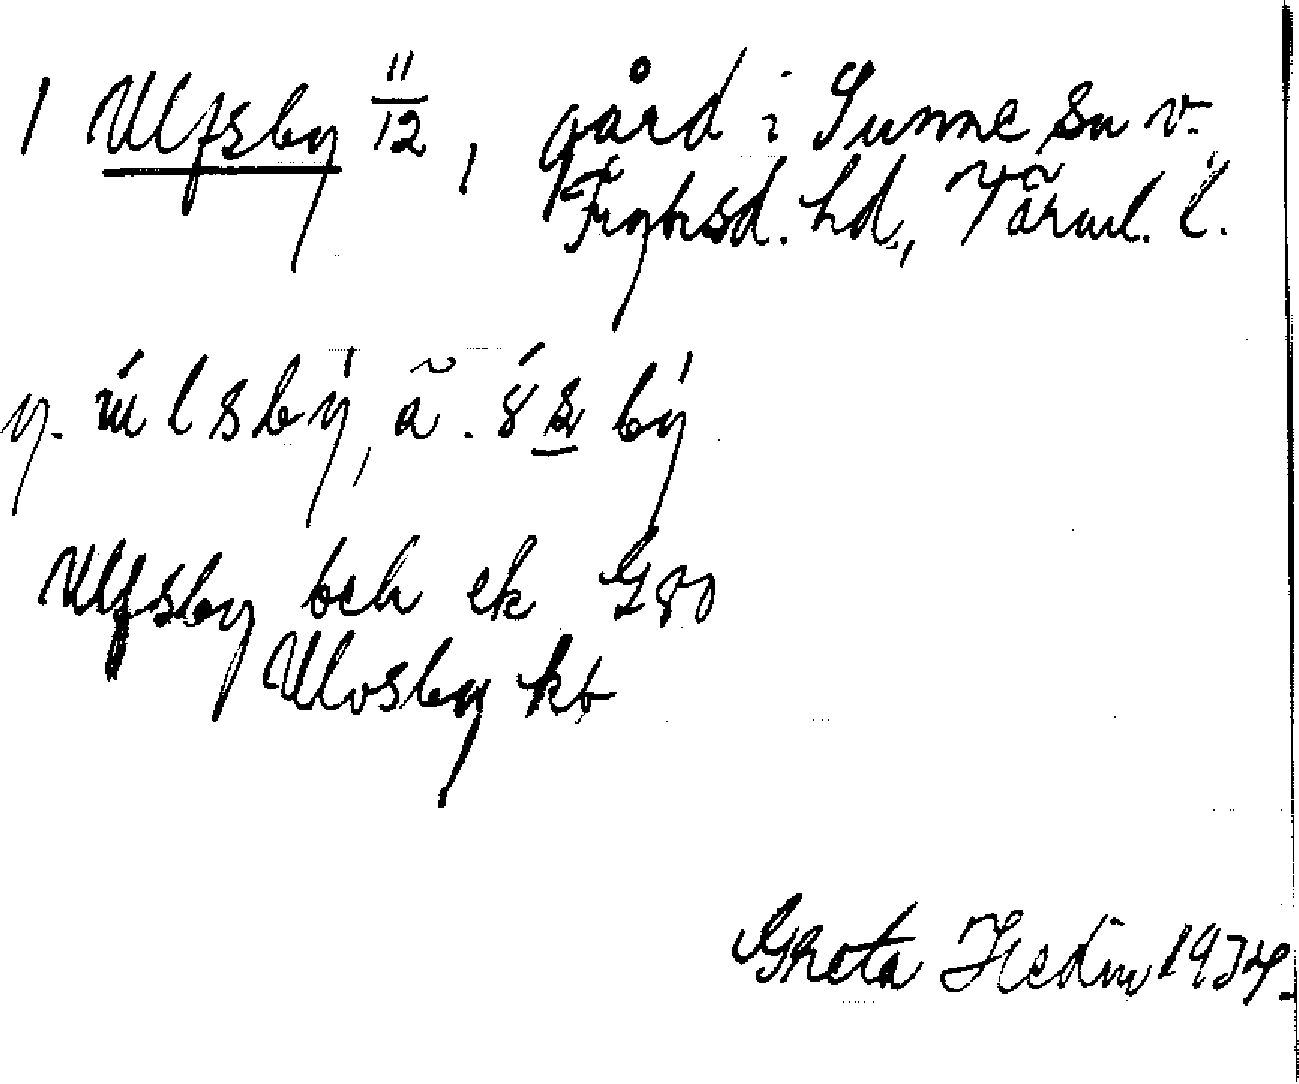 1 Ulfsby 11/12, gård i Sunne sn v.
Fryksd. hd., Värml. l.
y. úlsbý, ã. ǿsbý
Ulfsby bek ek G80
Ulvsby kb
Greta Hedin 1934.